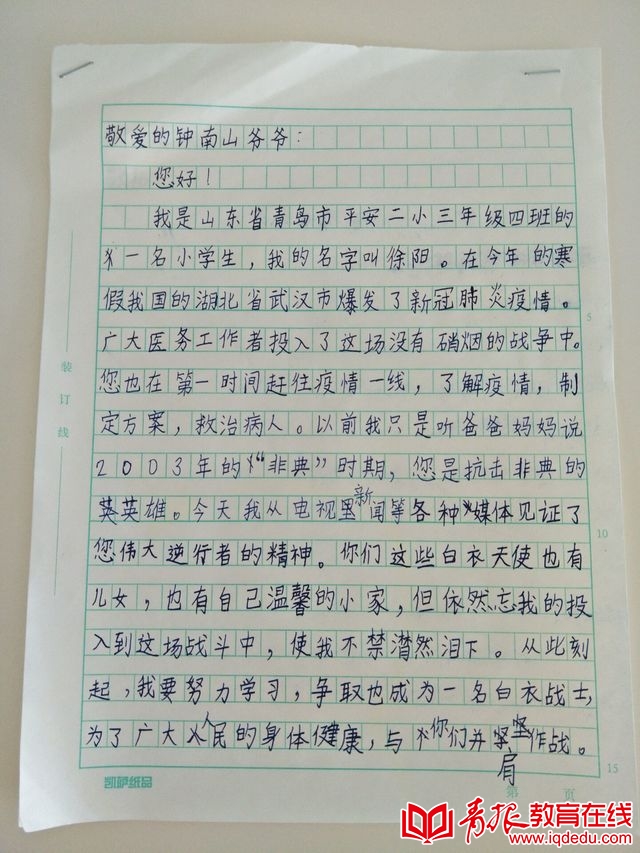 敬爱的钟南山爷爷：
您好！
我是山东省青岛市平安二小三年级四班的
一名小学生，我的名字叫徐阳。在今年的寒
假我国的湖北省武汉市爆发了新冠肺炎疫情。
广大医务工作者投入了这场没有硝烟的战争中。
您也在第一时间赶往疫情一线，了解疫情，制
定方案，救治病人。以前我只是听爸爸妈妈说
2003年的“非典”时期，您是抗击非典的
英雄。今天我从电视里新闻等各种媒体见证了
您伟大逆行者的精神。你们这些白衣天使也有
儿女，也有自己温馨的小家，但依然忘我的投
入到这场战斗中，使我不禁潸然泪下。从此刻
起，我要努力学习，争取也成为一名白衣战士，
为了广大人民的身体健康，与你们并肩作战。
装订线
5
10
15
凯萨纸品
第 页
青报教育在线
www.iqdedu.com